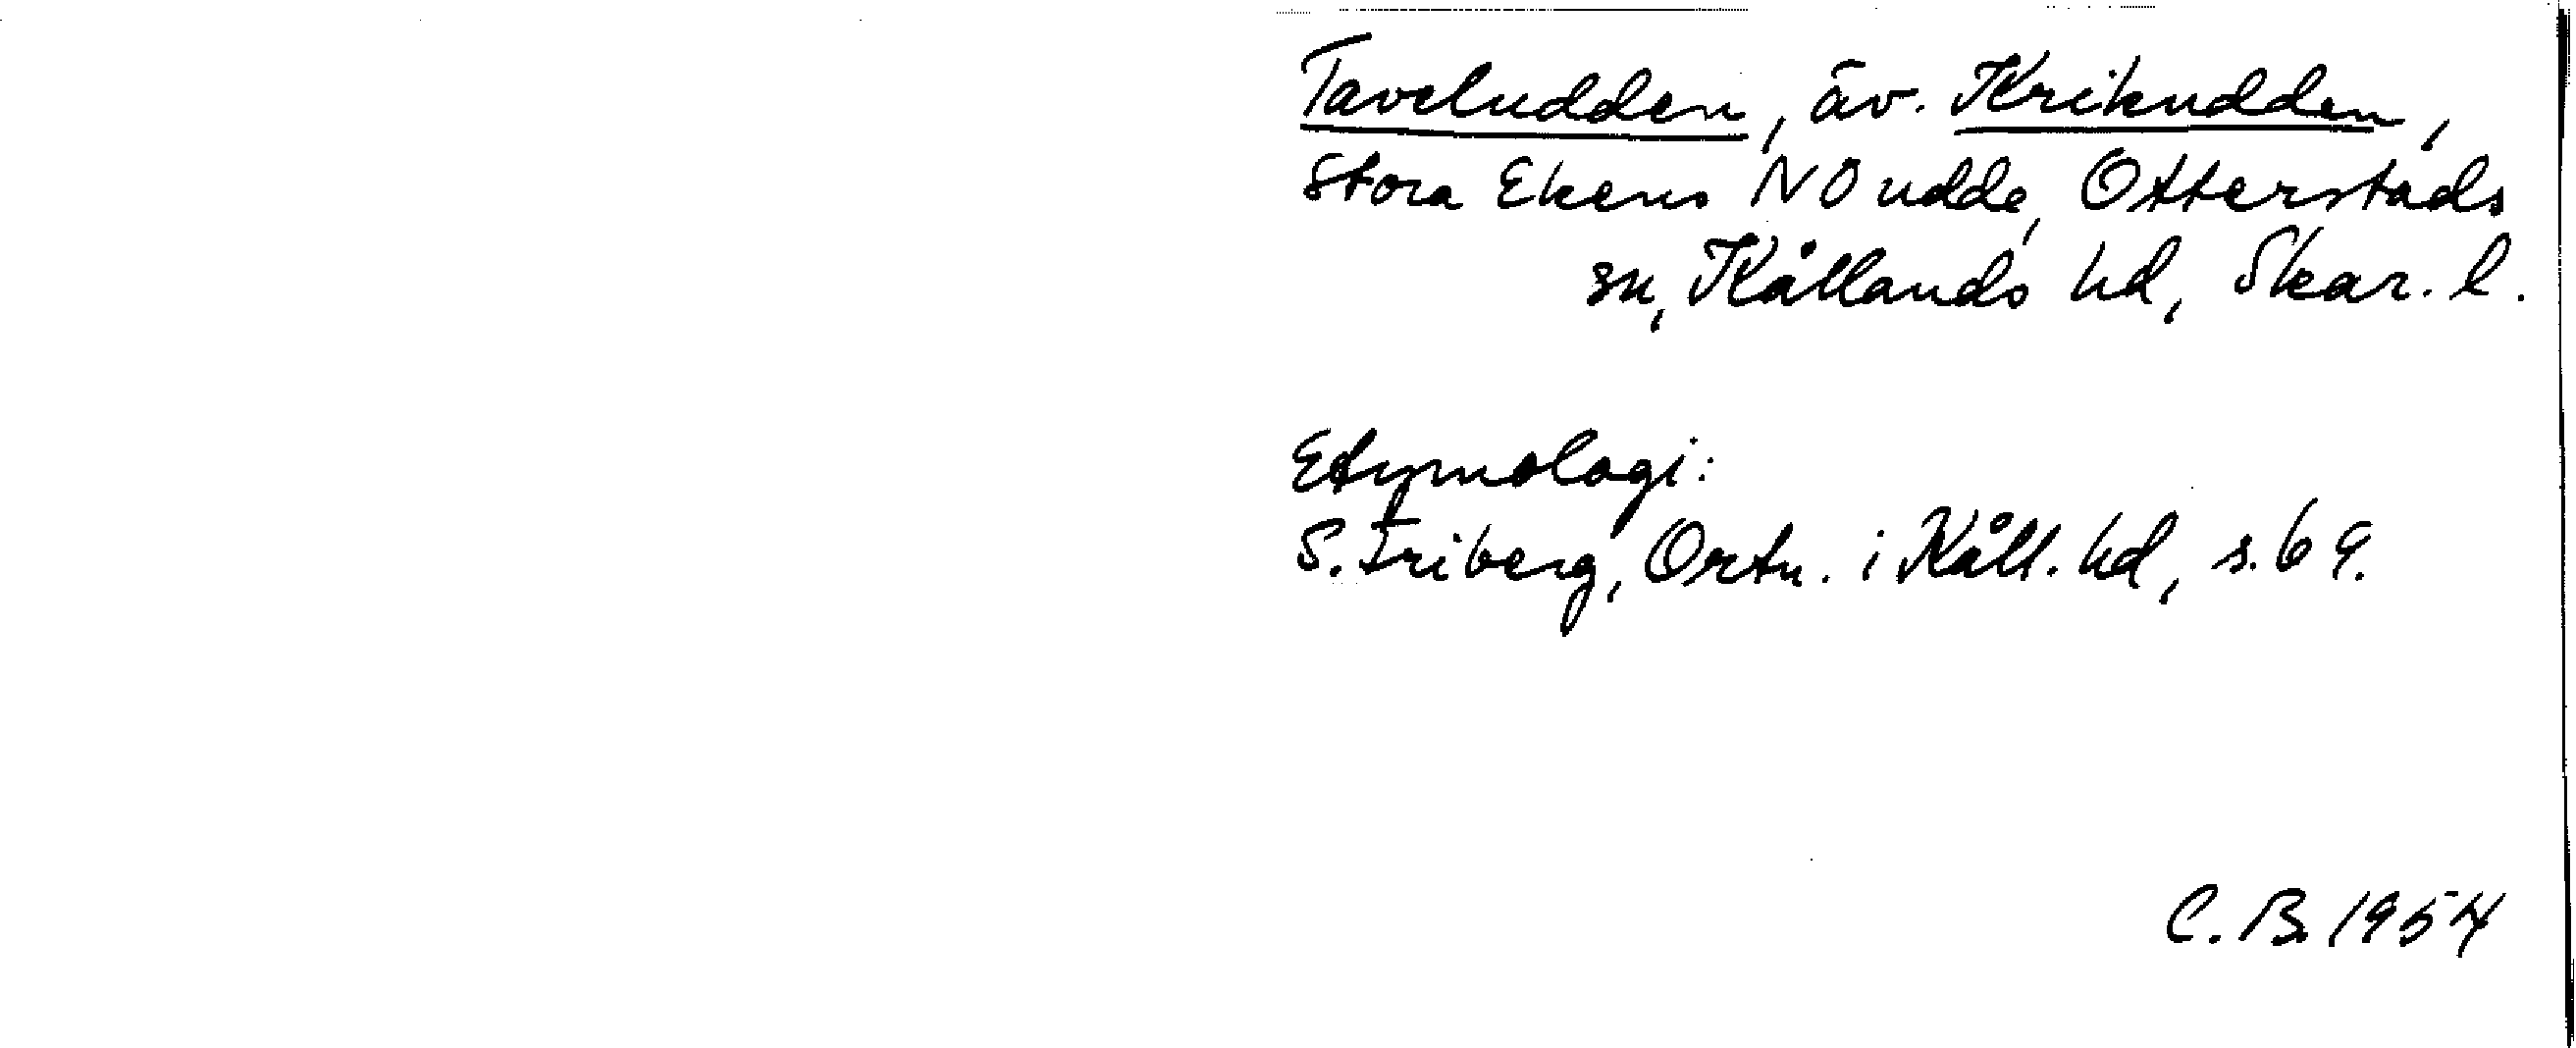 Taveludden, äv. Krikudden,
Stora Ekens NÖ udde, Otterstads
sn, Kållands hd, Skar. l.
Etymologi:
S. Friberg, Ortn. i Kåll. hd, s. 69.
C. B. 1954